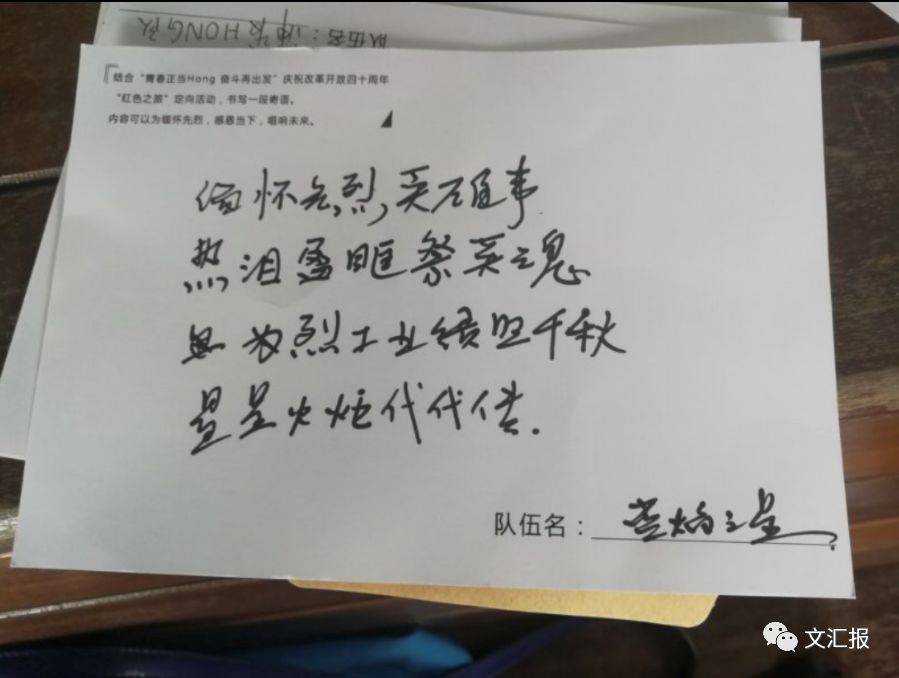 队伍名：神农HONG队
结合“青春正当Hong 奋斗再出发”庆祝改革开放四十周年
“红色之旅”定向活动，书写一段寄语。
内容可以为缅怀先烈，感恩当下，唱响未来。
缅怀先烈，英雄事
热泪盈眶祭英魂
为烈士业绩照千秋
星星火炬代代传.
队伍名：焰之星
文汇报